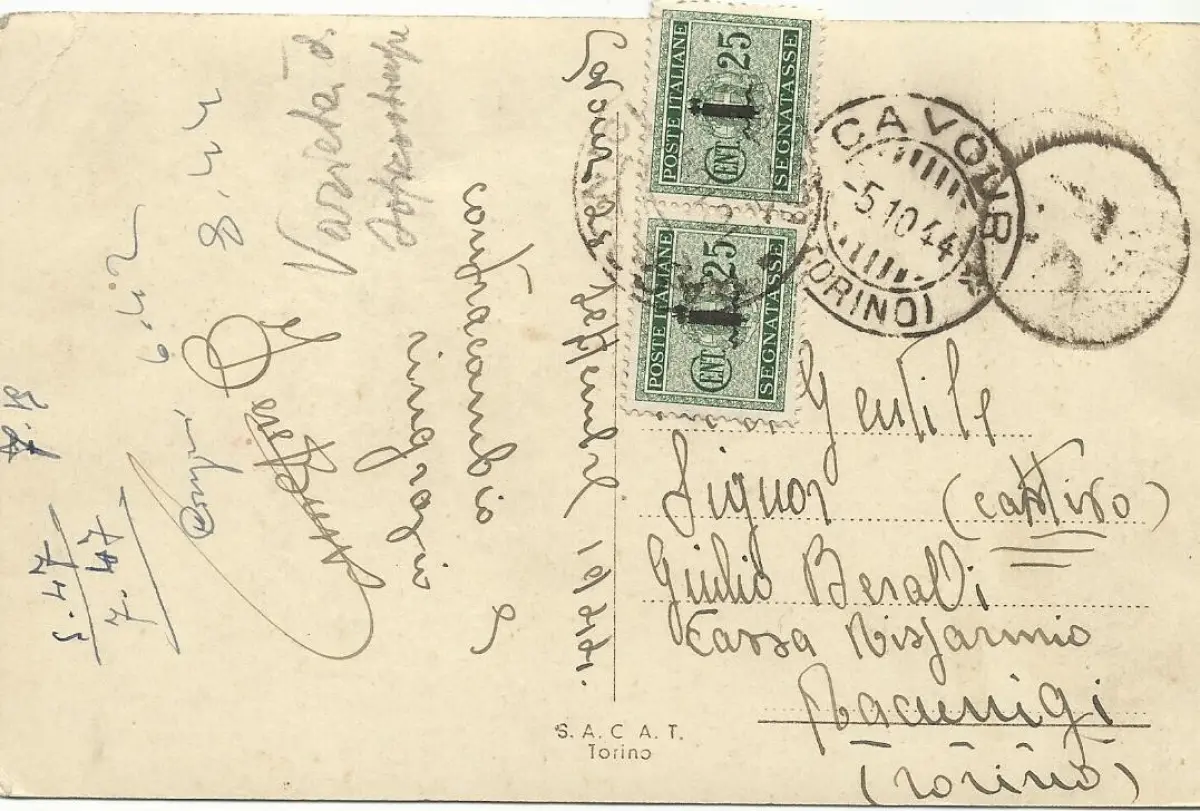 Cavour 25 settembre 1944.
contraccambio e
ringrazio
Varietà di
8.44
6.42
5.47
7.47
POSTE ITALIANE
SEGNATASSE
CENT. 25
POSTE ITALIANE
SEGNATASSE
CENT. 25
CAVOUR
-5.10.44
(TORINO)
Gentile
Signor (cattivo)
Giulio Beraldi
Cassa Risparmio
Racconigi
(Torino)
S.A.C.A.T.
Torino